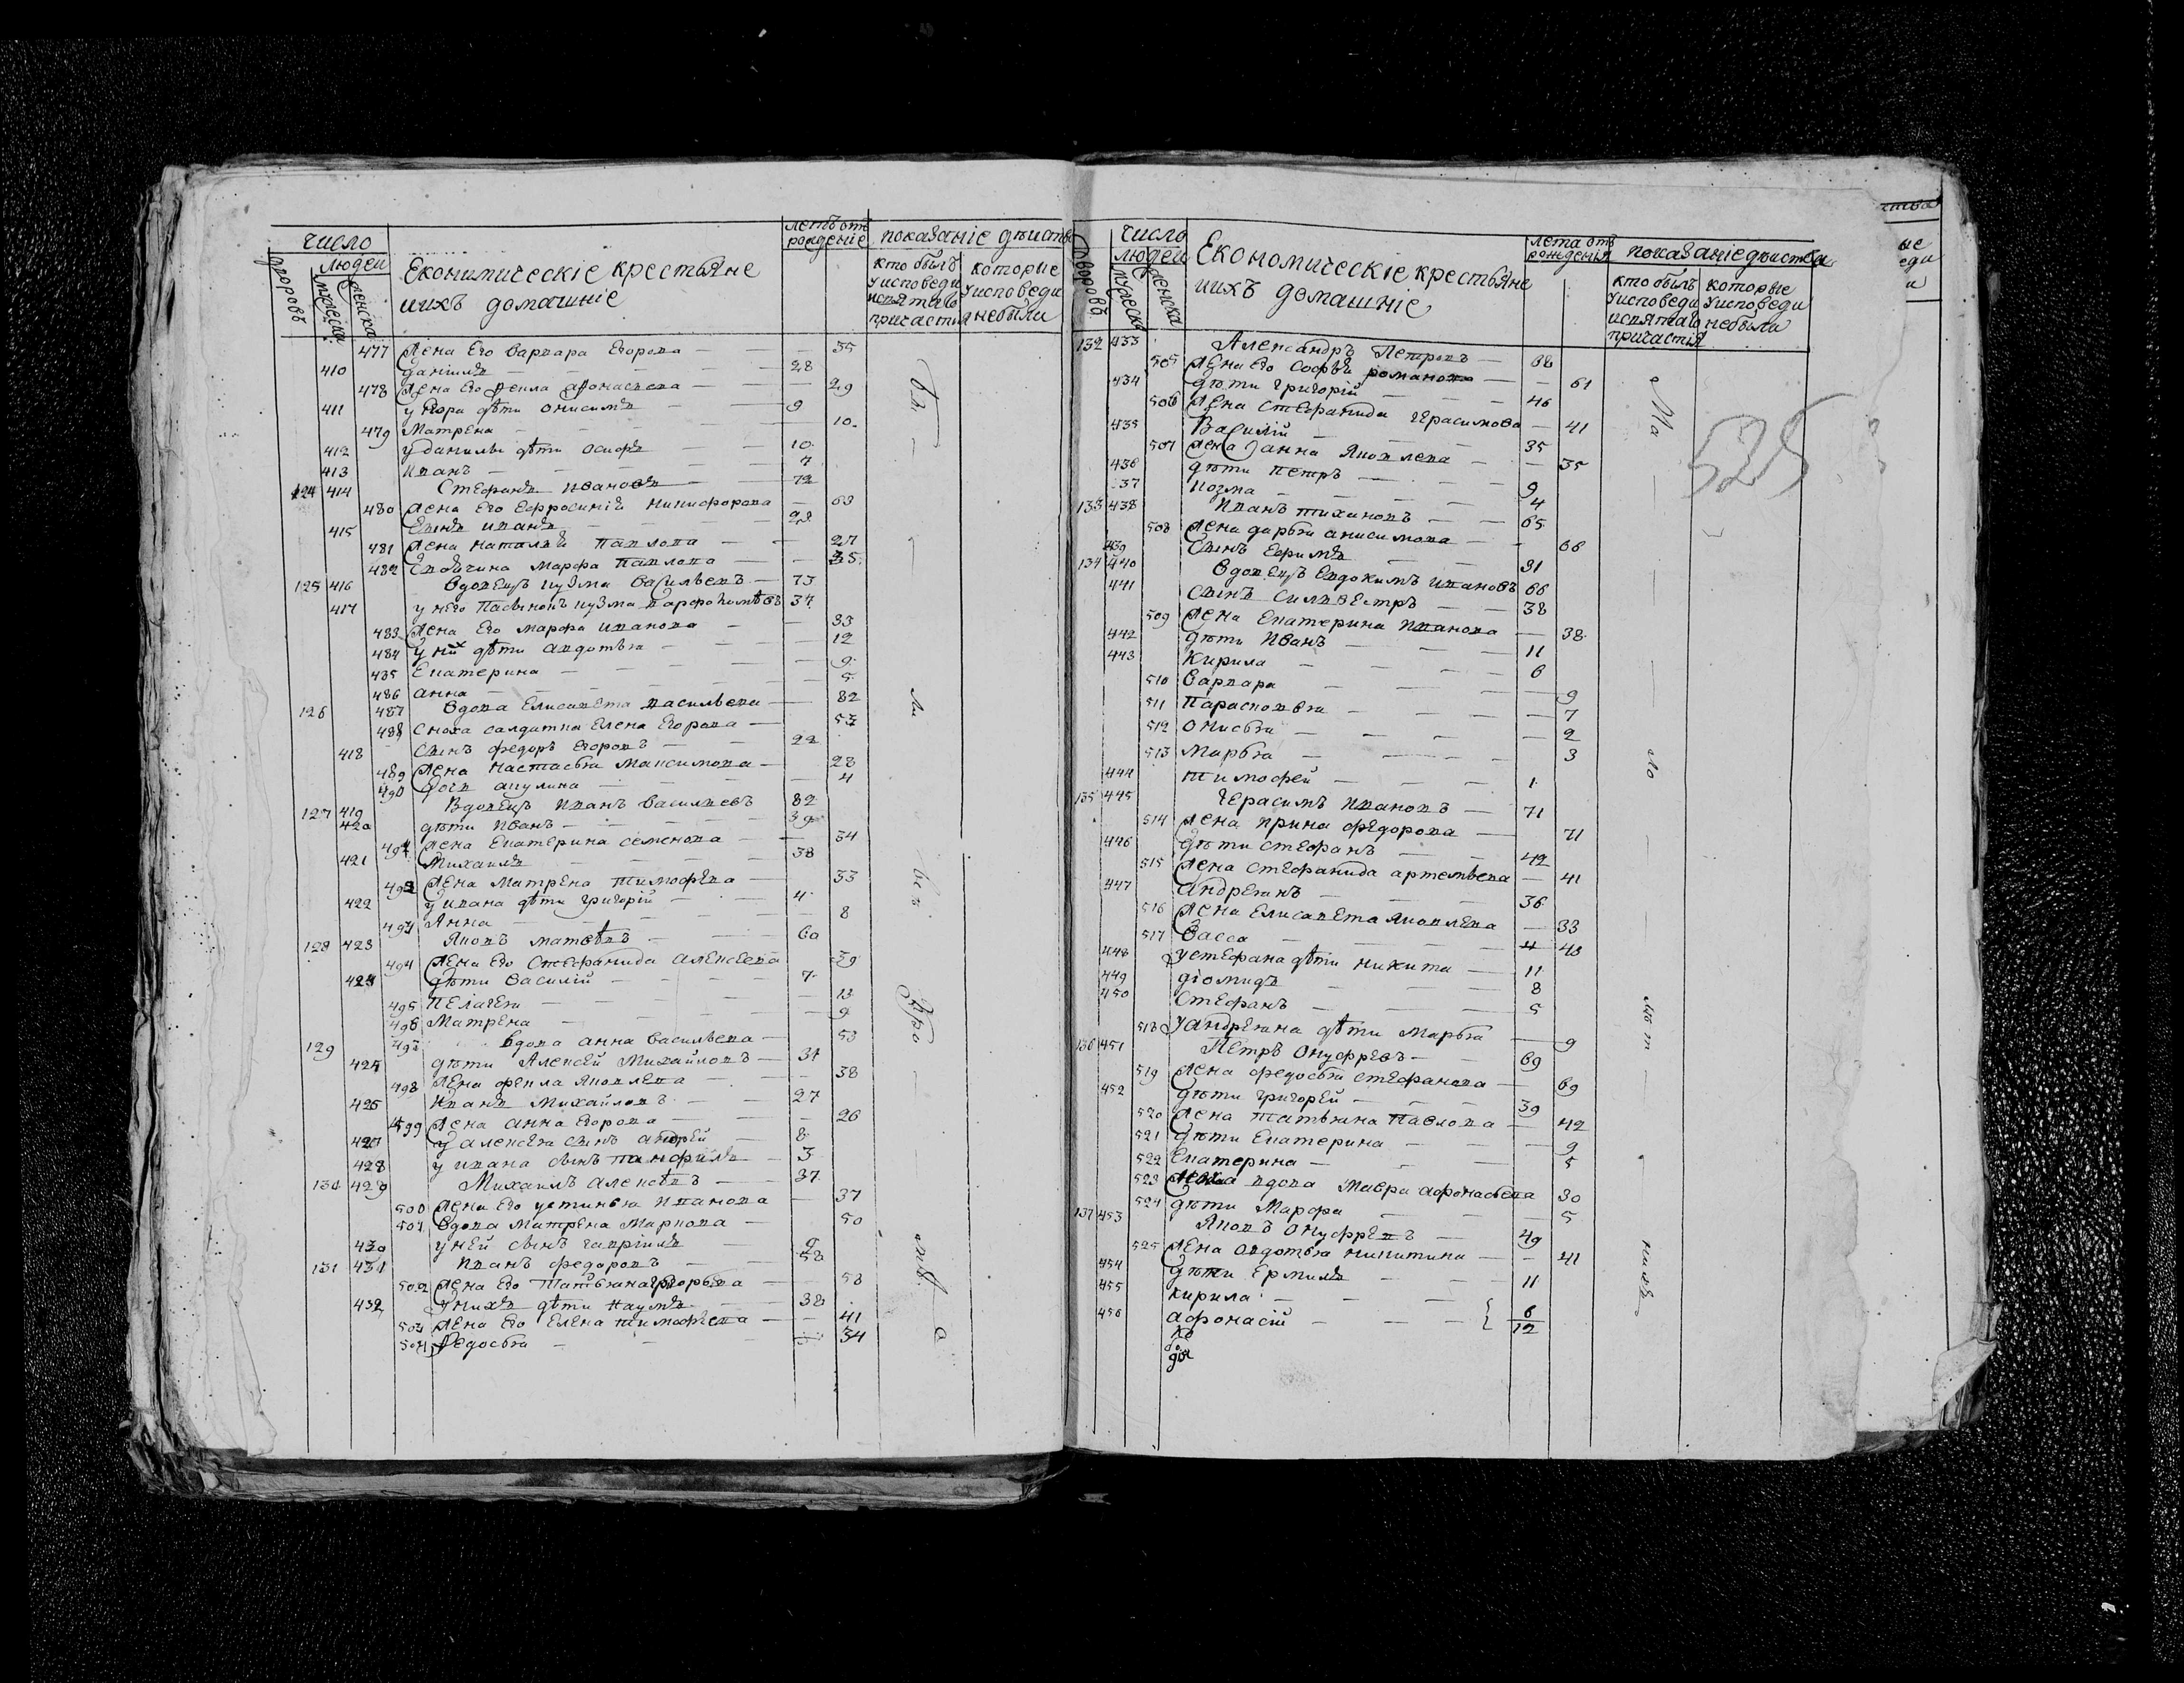 число
людей
дворовъ
мужеска
женска
Економическіе крестьяне
ихъ домашніе
летъ отъ
рождение
показаніе действа
кто былъ у исповеди и святаго причастия
которые у исповеди небыли
477 Жена Его варвара Егорова — 35
410 данилъ — 28
478 Жена Его фекла афонасьева — 29
411 у Егора дѣти онисимъ — 9
479 Матрена — 10
412 у данилы дѣти осифъ — 10
413 иванъ — 7
124 414 Стефанъ ивановъ — 72
480 Жена Его Ефросиниѣ никифорова — 63
415 Сынъ иванъ — 29
481 Жена наталья павлова — 27
482 марфа павлова — 35
125 416 вдовецъ кузма васильевъ — 73
417 у него пасынокъ кузма парфо 37
483 Жена Его марфа иванова — 33
484 у ни дѣти авдотья — 12
485 Екатерина — 9
486 анна — 5
126 487 вдова Елисавета васильева — 82
488 сноха салдатка Елена Егорова — 53
418 Сынъ федоръ Егоровъ — 22
489 Жена настасья максимова — 28
490 дочь акулина — 4
127 419 вдовецъ иванъ васильевъ 82
420 дѣти иванъ — 39
491 Жена Екатерина семенова — 34
421 михаилъ — 38
492 Жена матрена тимофева — 33
422 у ивана дѣти григорій — 4
493 Анна — 8
128 423 яковъ матвѣвъ — 60
494 Жена Его Стефанида алексеева 39
424 дѣти василій — 7
495 пелагея — 13
496 матрена — 9
129 497 вдова анна васильева — 53
425 дѣти алексей михайловъ — 31
498 Жена фекла яковлева — 38
426 иванъ михайловъ — 27
499 Жена анна Егорова — 26
427 у алексея сынъ андрей — 8
428 у ивана сынъ панфилъ — 3
130 429 михаилъ алексѣвъ — 37
500 Жена Его устинья иванова — 37
501 вдова матрена маркова — 50
430 у ней сынъ гаврiилъ — 9
131 431 иванъ федоровъ — 58
502 Жена Его татьяна григорьева — 58
432 у нихъ дѣти наумъ — 38
503 Жена Его Елена тимофеева — 41
504 федосья — 34
число
людей
дворовъ
мужеска
женска
Економическіе крестьяне
ихъ домашніе
лета отъ
рожденія
показаніе действа
кто былъ у исповеди и святаго причастія
которые у исповеди небыли
525
132 433 Александръ Петровъ — 68
505 Жена Его софья романова — 61
434 дѣти григорій — 46
506 Жена стефанида герасимова — 41
435 Василій — 35
507 Жена анна яковлева — 35
436 дѣти петръ — 9
37 козма — 4
133 438 иванъ тихановъ — 65
508 Жена дарья анисимова — 66
439 Сынъ Ефимъ — 31
134 440 вдовецъ Евдокимъ ивановъ 66
441 Сынъ силвестръ — 38
509 Жена Екатерина иванова — 38
442 дѣти иванъ — 11
443 кирила — 6
510 варвара — 9
511 парасковья — 7
512 онисья — 2
513 марья — 3
444 тимофей — 1
135 445 герасимъ ивановъ — 71
514 Жена ирина федорова — 71
446 дѣти стефанъ — 42
515 Жена стефанида артемьева — 41
447 андреянъ — 36
516 Жена Елисавета яковлева — 33
517 васса — 4 43
448 у стефана дѣти никита — 11
449 діомидъ — 8
450 стефанъ — 5
518 у андреяна дѣти марья — 9
136 451 Петръ онуфревъ — 69
519 Жена федосья стефанова — 69
452 дѣти григорей — 39
520 Жена татьяна павлова — 42
521 дѣти Екатерина — 9
522 Екатерина — 5
523 вдова мавра афонасьева 30
524 дѣти марфа — 5
137 453 яковъ онуфревъ — 49
525 Жена овдотья никитина — 41
454 дѣти Ермилъ — 11
455 кирила — 6
456 афонасій — 12